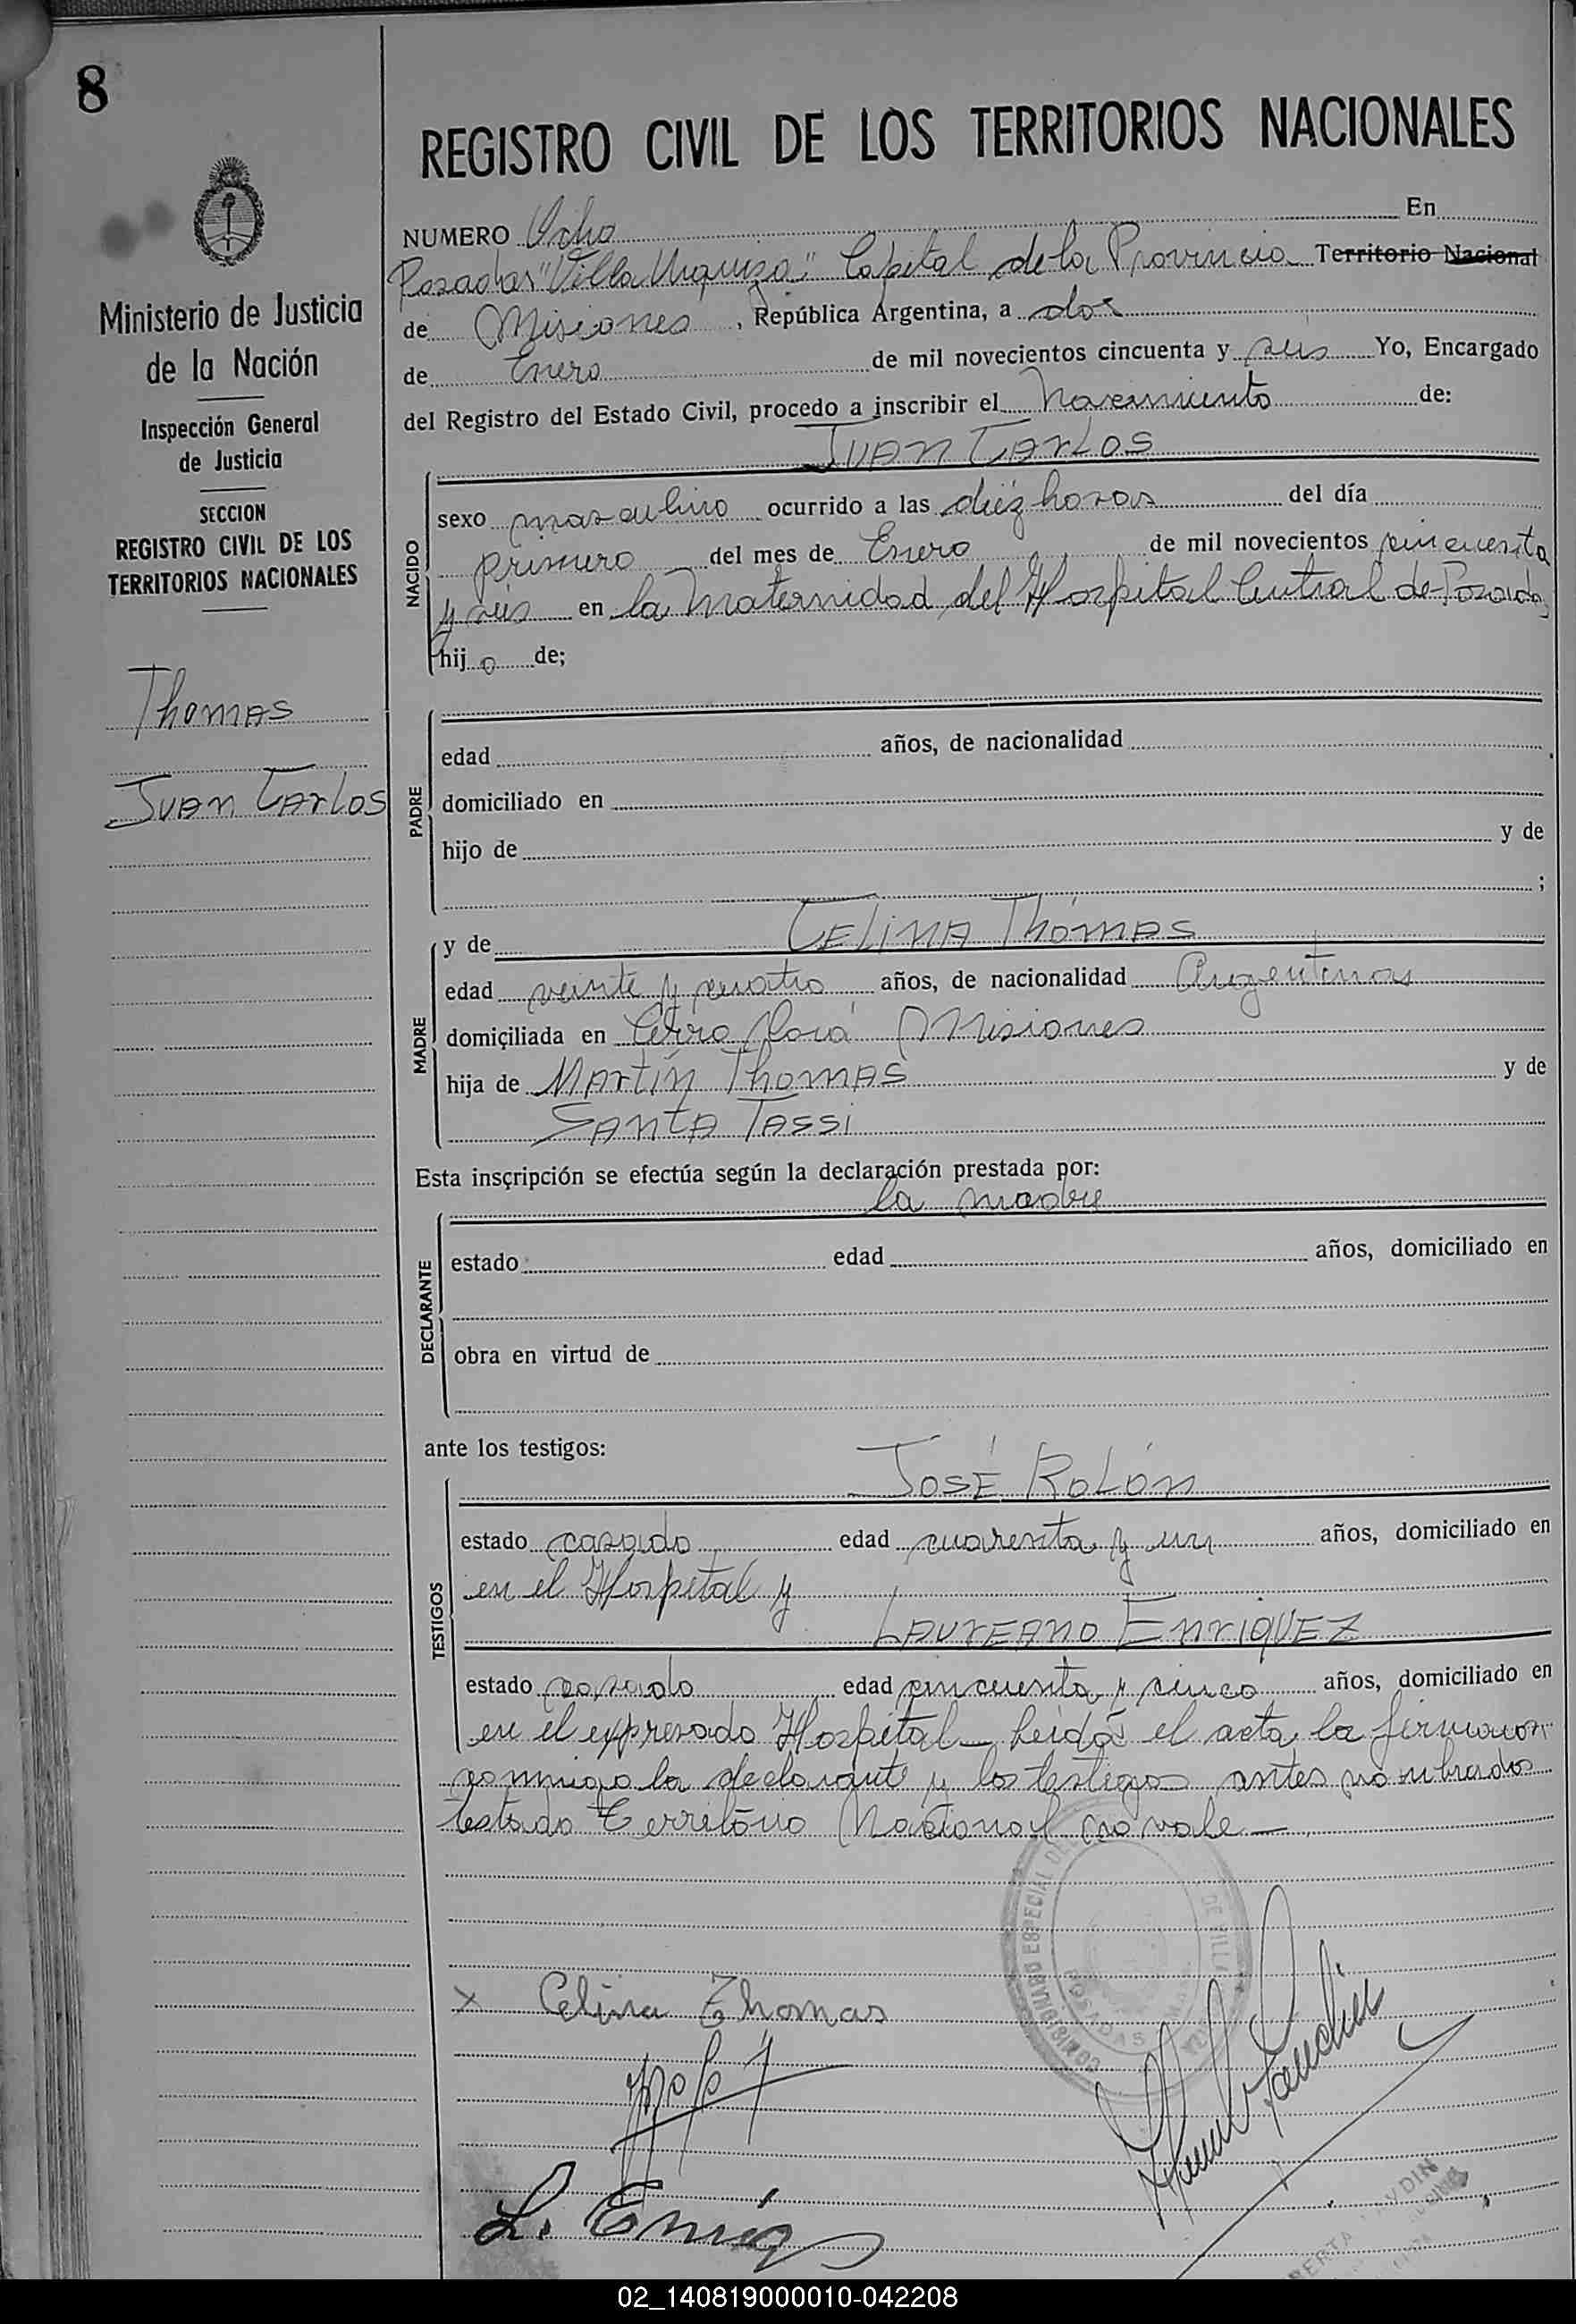 8
REGISTRO CIVIL DE LOS TERRITORIOS NACIONALES
Ministerio de Justicia
de la Nación
Inspección General
de Justicia
SECCION
REGISTRO CIVIL DE LOS
TERRITORIOS NACIONALES
Thomas
Juan Carlos
NUMERO Ocho En
Posadas "Villa Urquiza" Capital de la Provincia Territorio Nacional
de Misiones, República Argentina, a dos
de Enero de mil novecientos cincuenta y seis Yo, Encargado
del Registro del Estado Civil, procedo a inscribir el nacimiento de:
Juan Carlos
NACIDO
sexo masculino ocurrido a las diéz horas del día
primero del mes de Enero de mil novecientos cincuenta
y seis en la Maternidad del Hospital Central de Posadas
hijo de;
PADRE
edad años, de nacionalidad
domiciliado en
hijo de y de
;
MADRE
y de Celina Thomas
edad veinte y cuatro años, de nacionalidad Argentina
domiciliada en Cerro Corá Misiones
hija de Martín Thomas y de
Santa Tassi
Esta inscripción se efectúa según la declaración prestada por:
la madre
DECLARANTE
estado edad años, domiciliado en
obra en virtud de
ante los testigos:
José Rolón
TESTIGOS
estado casado edad cuarenta y un años, domiciliado en
en el Hospital y
Laureano Enriquez
estado casado edad cincuenta y cinco años, domiciliado en
en el expresado Hospital - Leida el acta la firmaron
conmigo la declarante y los testigos antes nombrados
testado Territorio Nacional no vale -
x Celina Thomas
L. Enriq
POSADAS
02_140819000010-042208